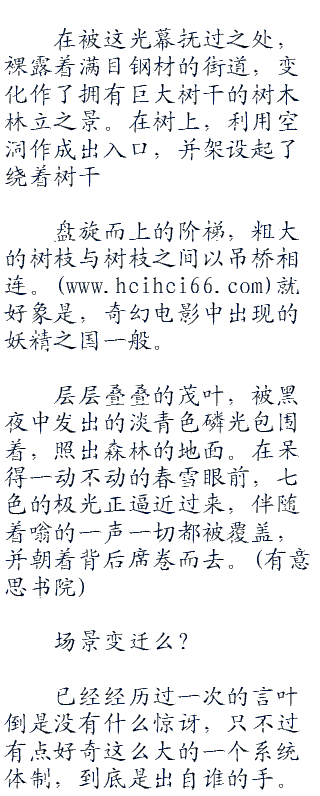 在被这光幕抚过之处，
裸露着满目钢材的街道，变
化作了拥有巨大树干的树木
林立之景。在树上，利用空
洞作成出入口，并架设起了
绕着树干
盘旋而上的阶梯，粗大
的树枝与树枝之间以吊桥相
连。(www.hcihci66.com)就
好象是，奇幻电影中出现的
妖精之国一般。
层层叠叠的茂叶，被黑
夜中发出的淡青色磷光包围
着，照出森林的地面。在呆
得一动不动的春雪眼前，七
色的极光正逼近过来，伴随
着嗡的一声一切都被覆盖，
并朝着背后席卷而去。(有意
思书院)
场景变迁么？
已经经历过一次的言叶
倒是没有什么惊讶，只不过
有点好奇这么大的一个系统
体制，到底是出自谁的手。